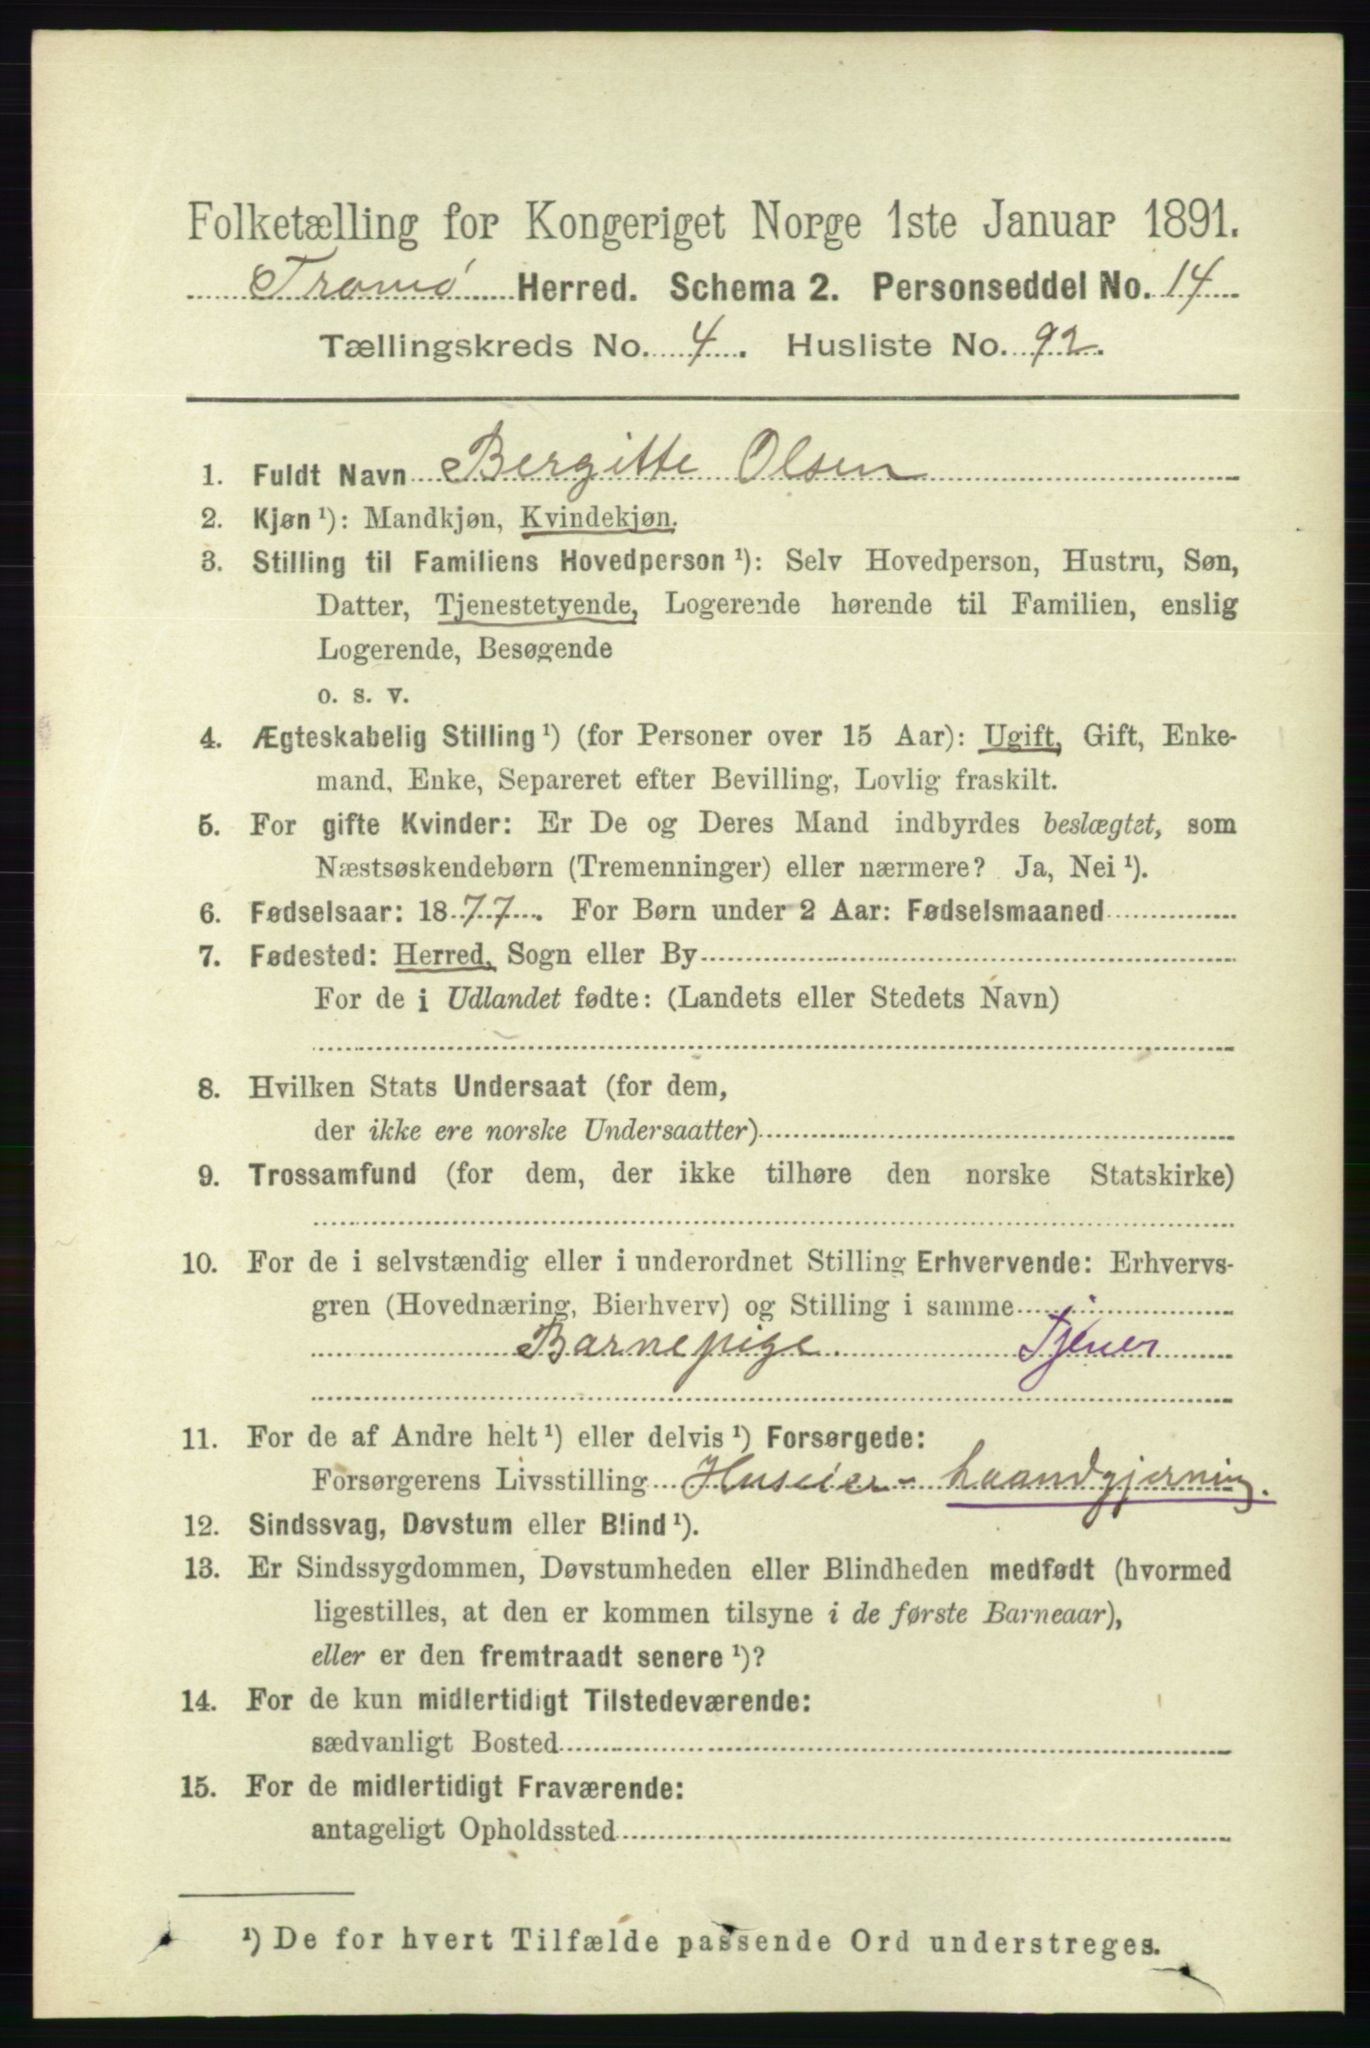 Folketælling for Kongeriget Norge 1ste Januar 1891.
Tromø Herred. Schema 2. Personseddel No. 14
Tællingskreds No. 4. Husliste No. 92.
1. Fuldt Navn Bergitte Olsen
2. Kjøn ¹): Mandkjøn, Kvindekjøn.
3. Stilling til Familiens Hovedperson ¹): Selv Hovedperson, Hustru, Søn,
Datter, Tjenestetyende, Logerende hørende til Familien, enslig
Logerende, Besøgende
o. s. v.
4. Ægteskabelig Stilling ¹) (for Personer over 15 Aar): Ugift, Gift, Enke-
mand, Enke, Separeret efter Bevilling, Lovlig fraskilt.
5. For gifte Kvinder: Er De og Deres Mand indbyrdes beslægtet, som
Næstsøskendebørn (Tremenninger) eller nærmere? Ja, Nei ¹).
6. Fødselsaar: 1877. For Børn under 2 Aar: Fødselsmaaned
7. Fødested: Herred, Sogn eller By
For de i Udlandet fødte: (Landets eller Stedets Navn)
8. Hvilken Stats Undersaat (for dem,
der ikke ere norske Undersaatter)
9. Trossamfund (for dem, der ikke tilhøre den norske Statskirke)
10. For de i selvstændig eller i underordnet Stilling Erhvervende: Erhvervs-
gren (Hovednæring, Bierhverv) og Stilling i samme
Barnepige. Tjener
11. For de af Andre helt ¹) eller delvis ¹) Forsørgede:
Forsørgerens Livsstilling Huseier - haandgjerning.
12. Sindssvag, Døvstum eller Blind ¹).
13. Er Sindssygdommen, Døvstumheden eller Blindheden medfødt (hvormed
ligestilles, at den er kommen tilsyne i de første Barneaar),
eller er den fremtraadt senere ¹)?
14. For de kun midlertidigt Tilstedeværende:
sædvanligt Bosted
15. For de midlertidigt Fraværende:
antageligt Opholdssted
¹) De for hvert Tilfælde passende Ord understreges.